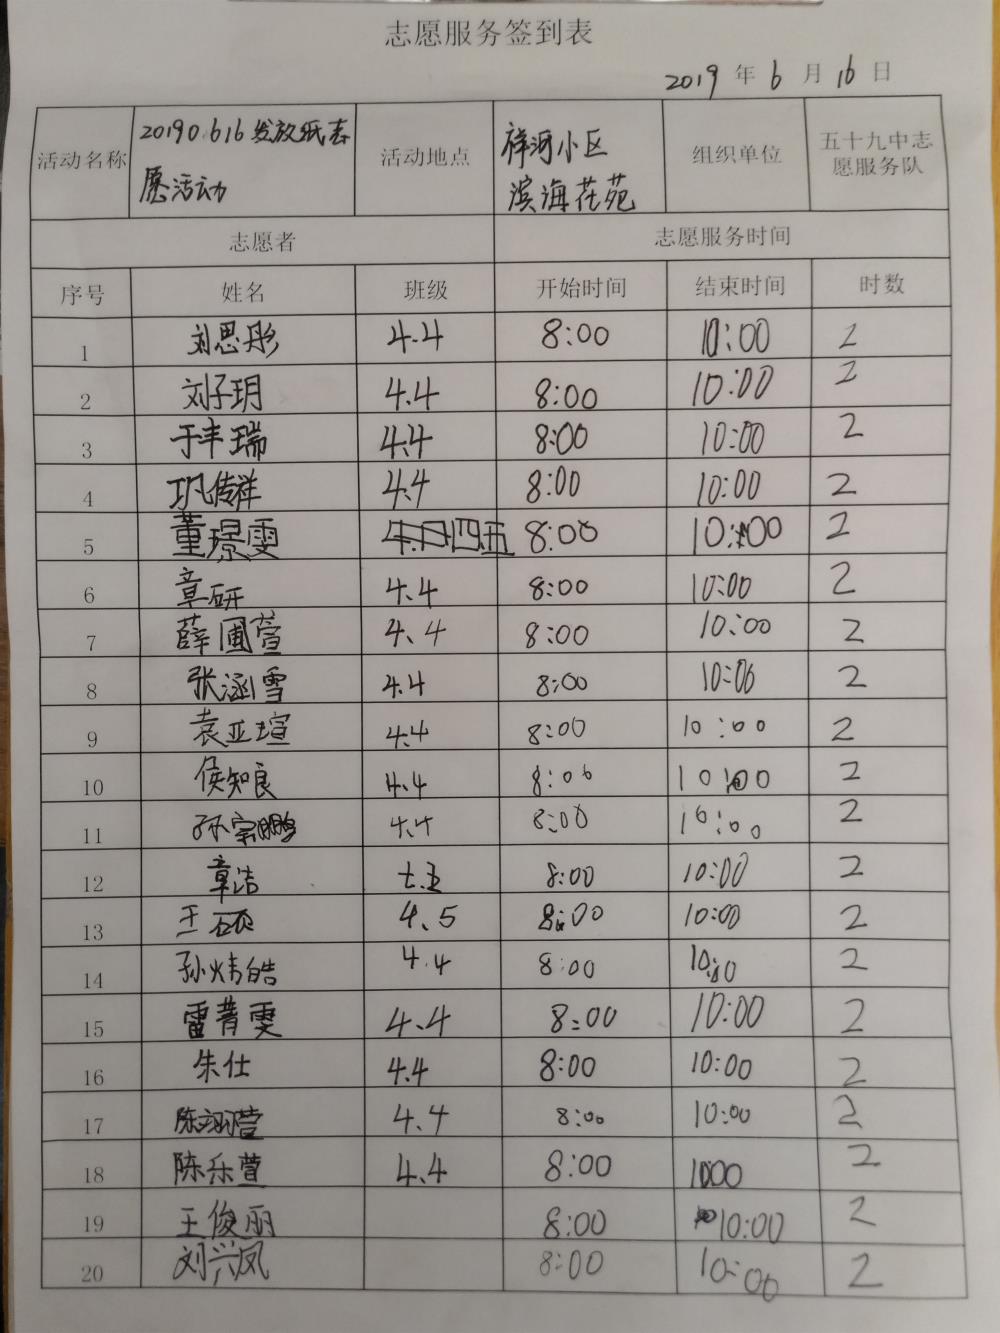 志愿服务签到表
2019 年 6 月 16 日
活动名称 20190616发放纸志愿活动 活动地点 祥河小区 滨海花苑 组织单位 五十九中志愿服务队
志愿者 志愿服务时间
序号 姓名 班级 开始时间 结束时间 时数
1 刘思彤 4.4 8:00 10:00 2
2 刘子玥 4.4 8:00 10:00 2
3 于丰瑞 4.4 8:00 10:00 2
4 巩传祥 4.4 8:00 10:00 2
5 董璟雯 四五 8:00 10:00 2
6 章研 4.4 8:00 10:00 2
7 薛圃萱 4.4 8:00 10:00 2
8 张涵雪 4.4 8:00 10:00 2
9 袁亚瑄 4.4 8:00 10:00 2
10 侯知良 4.4 8:00 10:00 2
11 孙宗鹏 4.4 8:00 10:00 2
12 章洁 七.五 8:00 10:00 2
13 王硕 4.5 8:00 10:00 2
14 孙炜皓 4.4 8:00 10:0 2
15 雷菁雯 4.4 8:00 10:00 2
16 朱仕 4.4 8:00 10:00 2
17 陈翊萱 4.4 8:00 10:00 2
18 陈乐萱 4.4 8:00 1000 2
19 王俊丽 8:00 10:00 2
20 刘兴凤 8:00 10:00 2